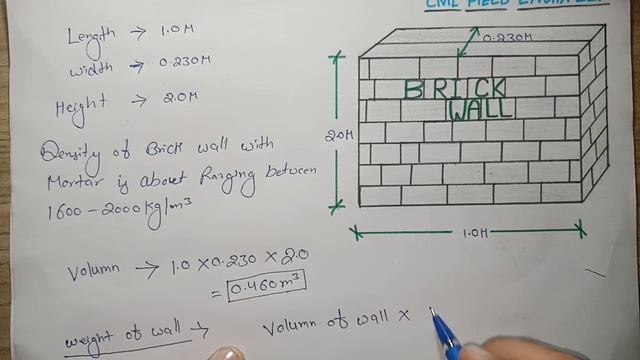 Length → 1.0M
width → 0.230M
Height → 2.0M
Density of Brick wall with
Mortar is about Ranging between
1600 - 2000 kg/m³
Volumn → 1.0 × 0.230 × 2.0
= 0.460m³
weight of wall → Volumn of wall ×
0.230M
BRICK
WALL
2.0M
1.0M